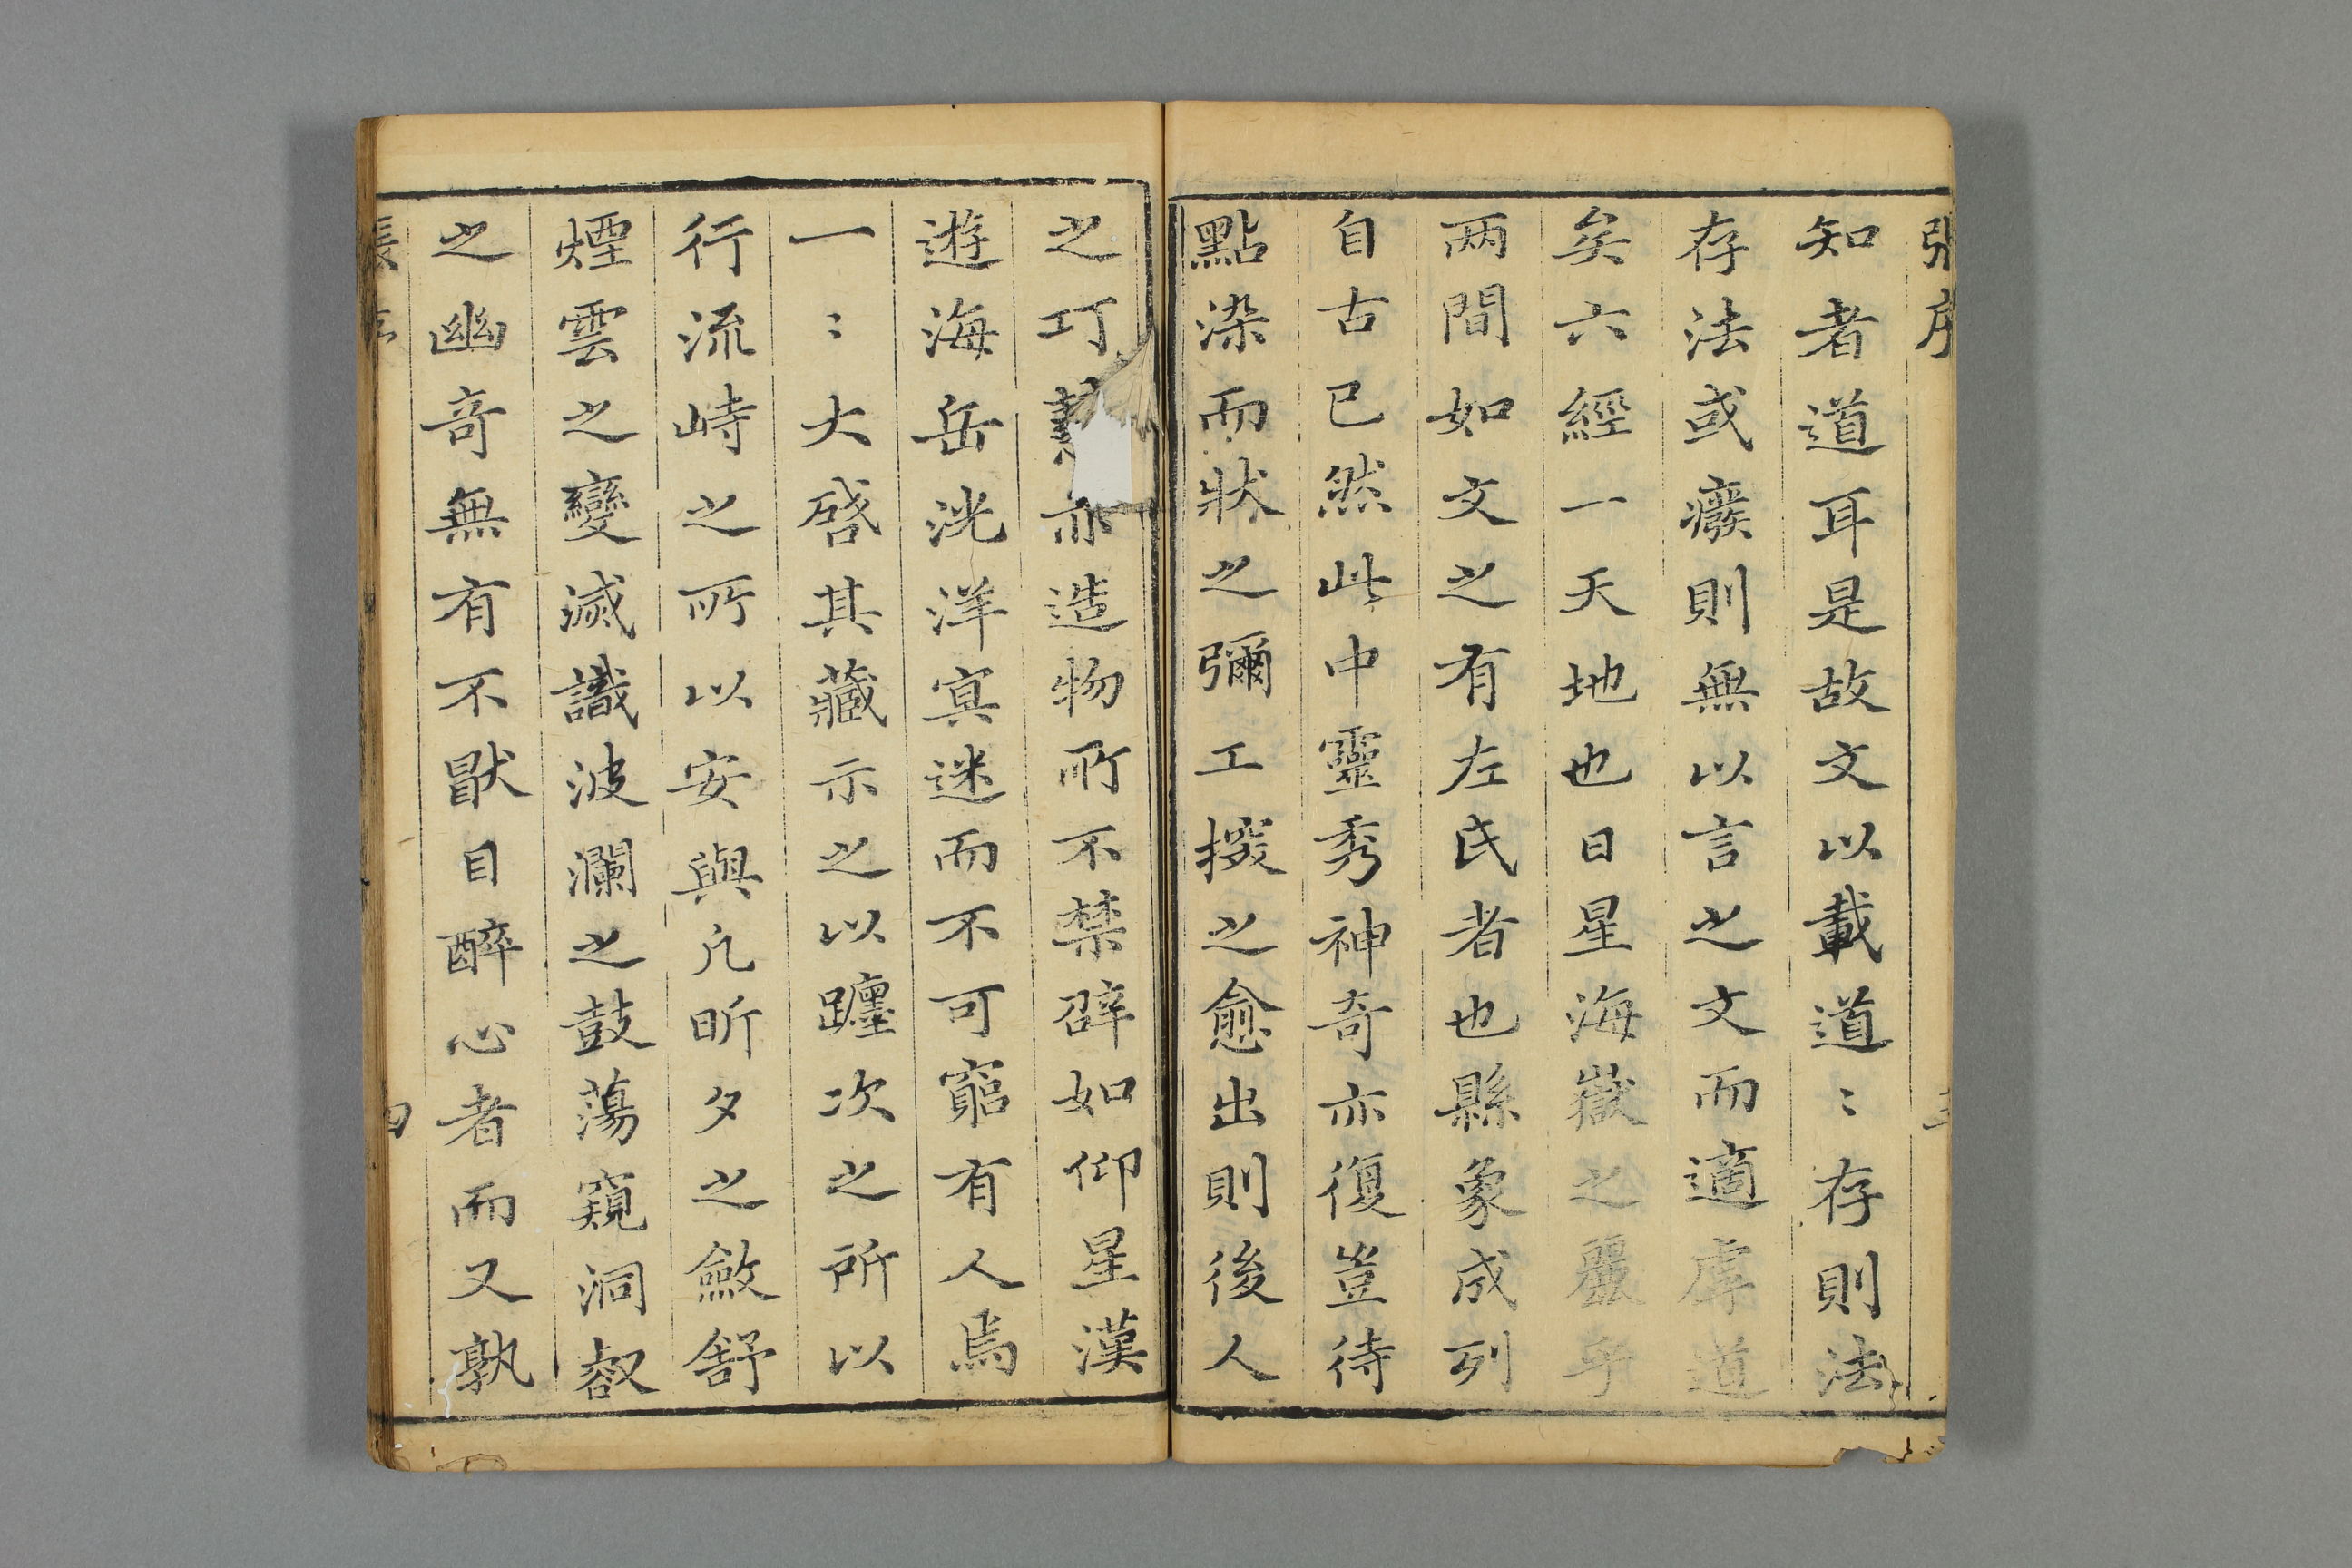 知者道耳是故文以載道〻存則法
存法或癈則無以言之文而適虖道
矣六經一天地也日星海嶽之麗乎
两間如文之有左氏者也縣象成列
自古已然此中靈秀神奇亦復豈待
點染而狀之彌工撥之愈出則後人
之巧亦造物所不禁辟如仰星漢
遊海岳洸洋寘迷而不可窮有人焉
一〻大啓其藏示之以躔次之所以
行流峙之所以安與凢昕夕之斂舒
煙雲之變滅識波瀾之鼓蕩窺洞㕡
之幽竒無有不猒目醉心者而又孰